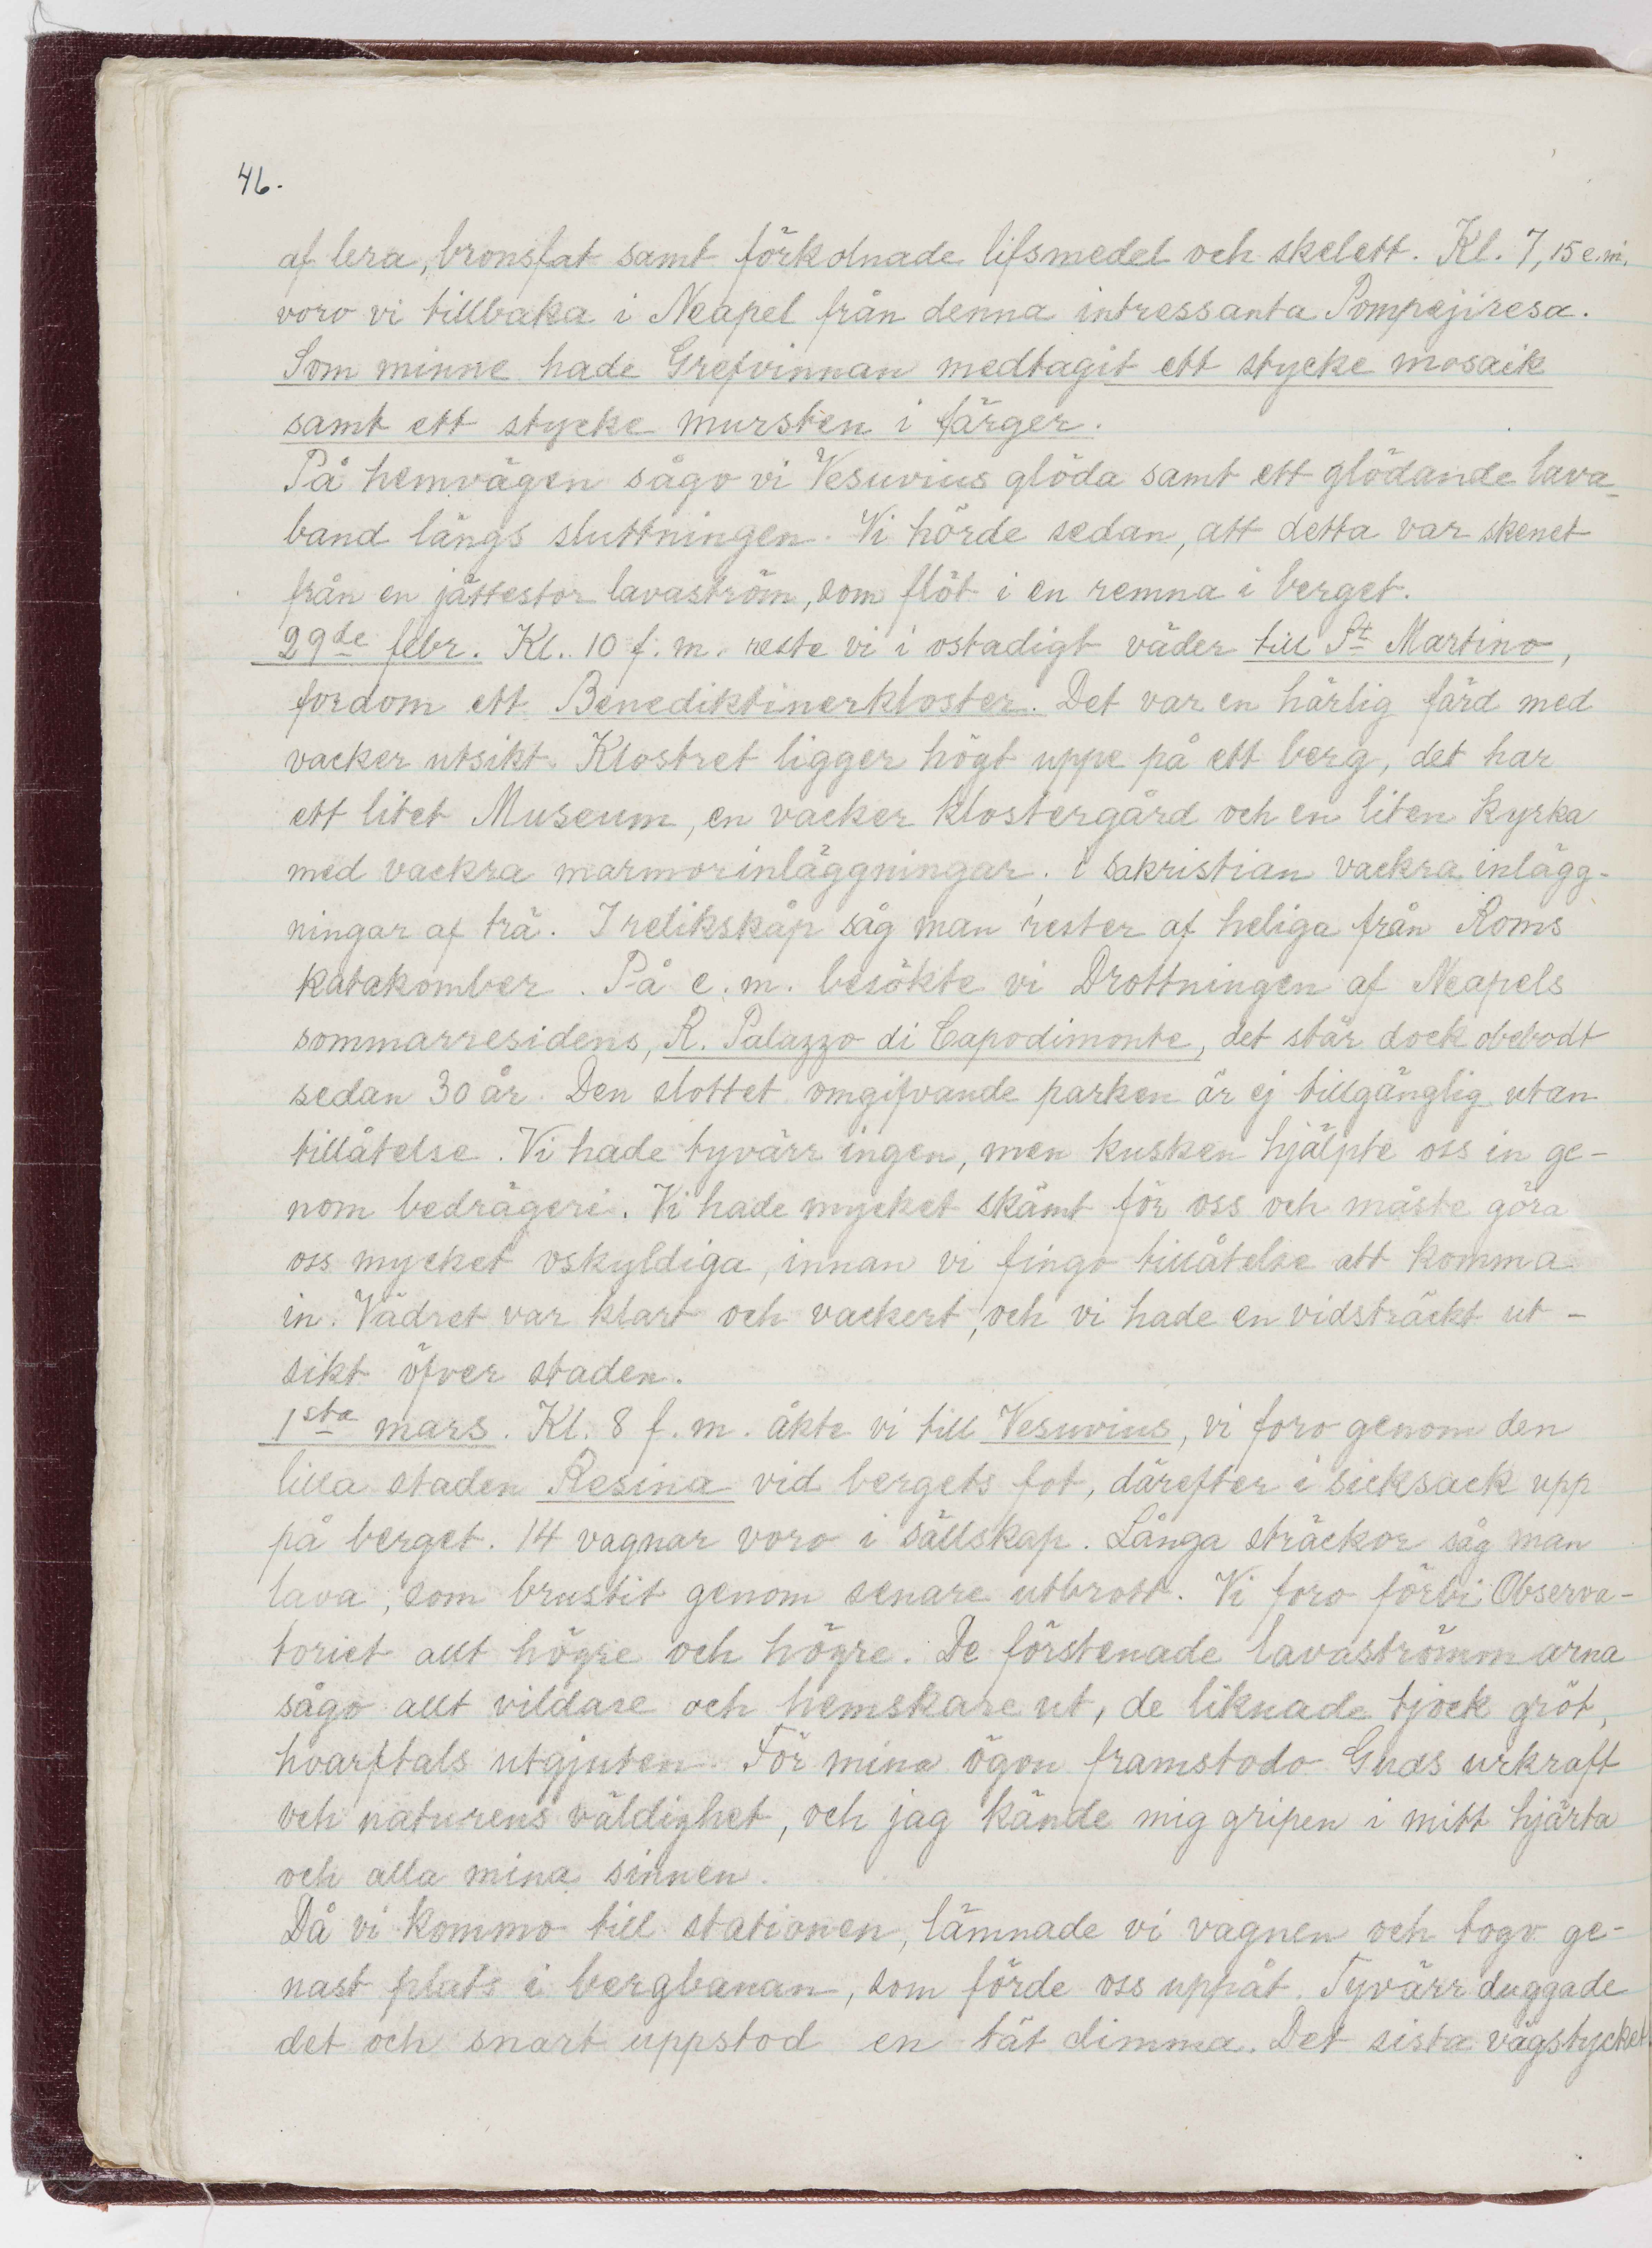 46.
af lera, bronsfat samt förkolnade lifsmedel och skelett. Kl. 7,15 e.m.
voro vi tillbaka i Neapel från denna intressanta Pompejiresa.
Som minne hade Grefvinnan medtagit ett stycke mosaik
samt ett stycke mursten i färger.
På hemvägen sågo vi Vesuvius glöda samt ett glödande lava-
band längs sluttningen. Vi hörde sedan, att detta var skenet
från en jättestor lavaström, som flöt i en remna i berget.
29de febr. Kl. 10 f. m. reste vi i ostadigt väder till St Martino,
fordom ett Benediktinerkloster. Det var en härlig färd med
vacker utsikt. Klostret ligger högt uppe på ett berg, det har
ett litet Museum, en vacker klostergård och en liten kyrka
med vackra marmorinläggningar. i sakristian vackra inlägg-
ningar af trä. I relikskåp såg man rester af heliga från Roms
katakomber. På e. m. besökte vi Drottningen af Neapels
sommarresidens, R. Palazzo di Capodimonte, det står dock obebodt
sedan 30 år. Den slottet omgifvande parken är ej tillgänglig utan
tillåtelse. Vi hade tyvärr ingen, men kusken hjälpte oss in ge-
nom bedrägeri. Vi hade mycket skämt för oss och måste göra
oss mycket oskyldiga, innan vi fingo tillåtelse att komma
in. Vädret var klart och vackert, och vi hade en vidsträckt ut-
sikt öfver staden.
1sta mars. Kl. 8 f. m. åkte vi till Vesuvius, vi foro genom den
lilla staden Resina vid bergets fot, därefter i sicksack upp
på berget. 14 vagnar voro i sällskap. Långa sträckor såg man
lava, som brustit genom senare utbrott. Vi foro förbi Observa-
toriet allt högre och högre. De förstenade lavaströmmarna
sågo allt vildare och hemskare ut, de liknade tjock gröt,
hvarftals utgjuten. För mina ögon framstodo Guds urkraft
och naturens väldighet, och jag kände mig gripen i mitt hjärta
och alla mina sinnen.
Då vi kommo till stationen, lämnade vi vagnen och togo ge-
nast plats i bergbanan, som förde oss uppåt. Tyvärr duggade
det och snart uppstod en tät dimma. Det sista vägstycket